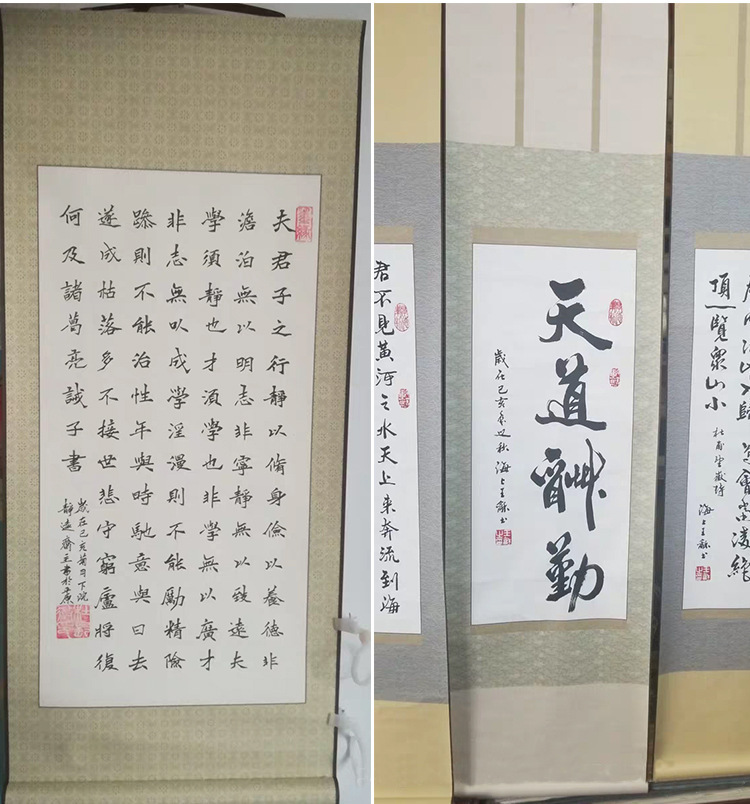 夫君子之行靜以脩身儉以養德非
澹泊無以明志非寧靜無以致遠夫
學須靜也才須學也非學無以廣才
非志無㕥成學淫漫則不能勵精險
躁則不能治性年與時馳意與日去
遂成枯落多不接世悲守窮廬將復
何及諸葛亮誡子書
歲在己亥菊月下浣
靜遠齋主書於
君不見黃河之水天上来奔流到海
天道酬勤
歲在己亥年之秋海上王龢书
會當凌絕
頂一覽衆山小
杜甫望嶽詩
海上王龢书